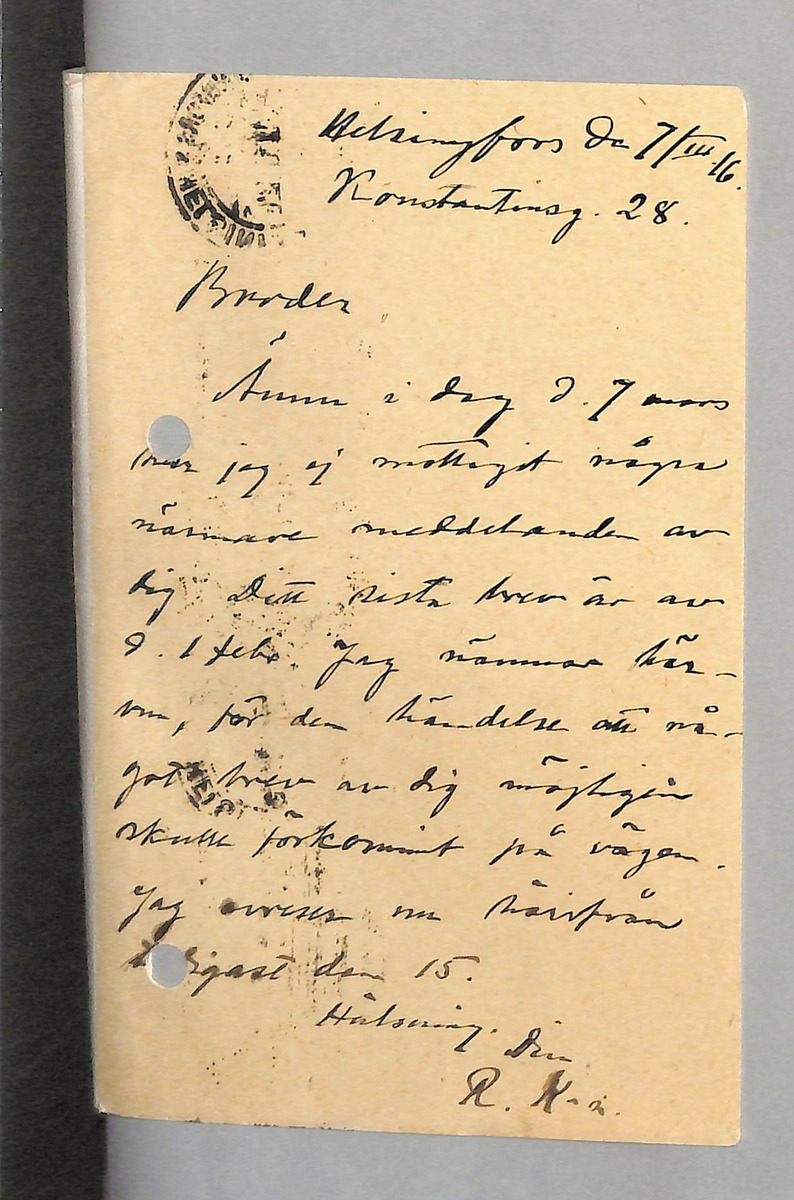 Helsingfors den 7/III 16.
Konstantinsg. 28.
Broder
Ännu i dag d. 7 mars
har jag ej mottagit några
närmare meddelanden av
dig Ditt sista brev är av
d. 1 febr Jag nämner här-
om, för den händelse att nå-
got brev av dig möjligen
skulle förkommit på vägen.
Jag avreser nu härifrån
den 15.
Hälsning. Din
R. K-n.